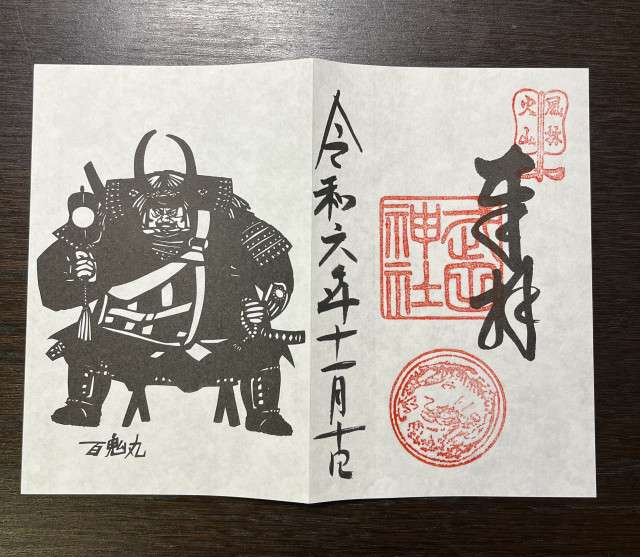 風林
火山
奉拝
武田
神社
令和六年十一月
百鬼丸